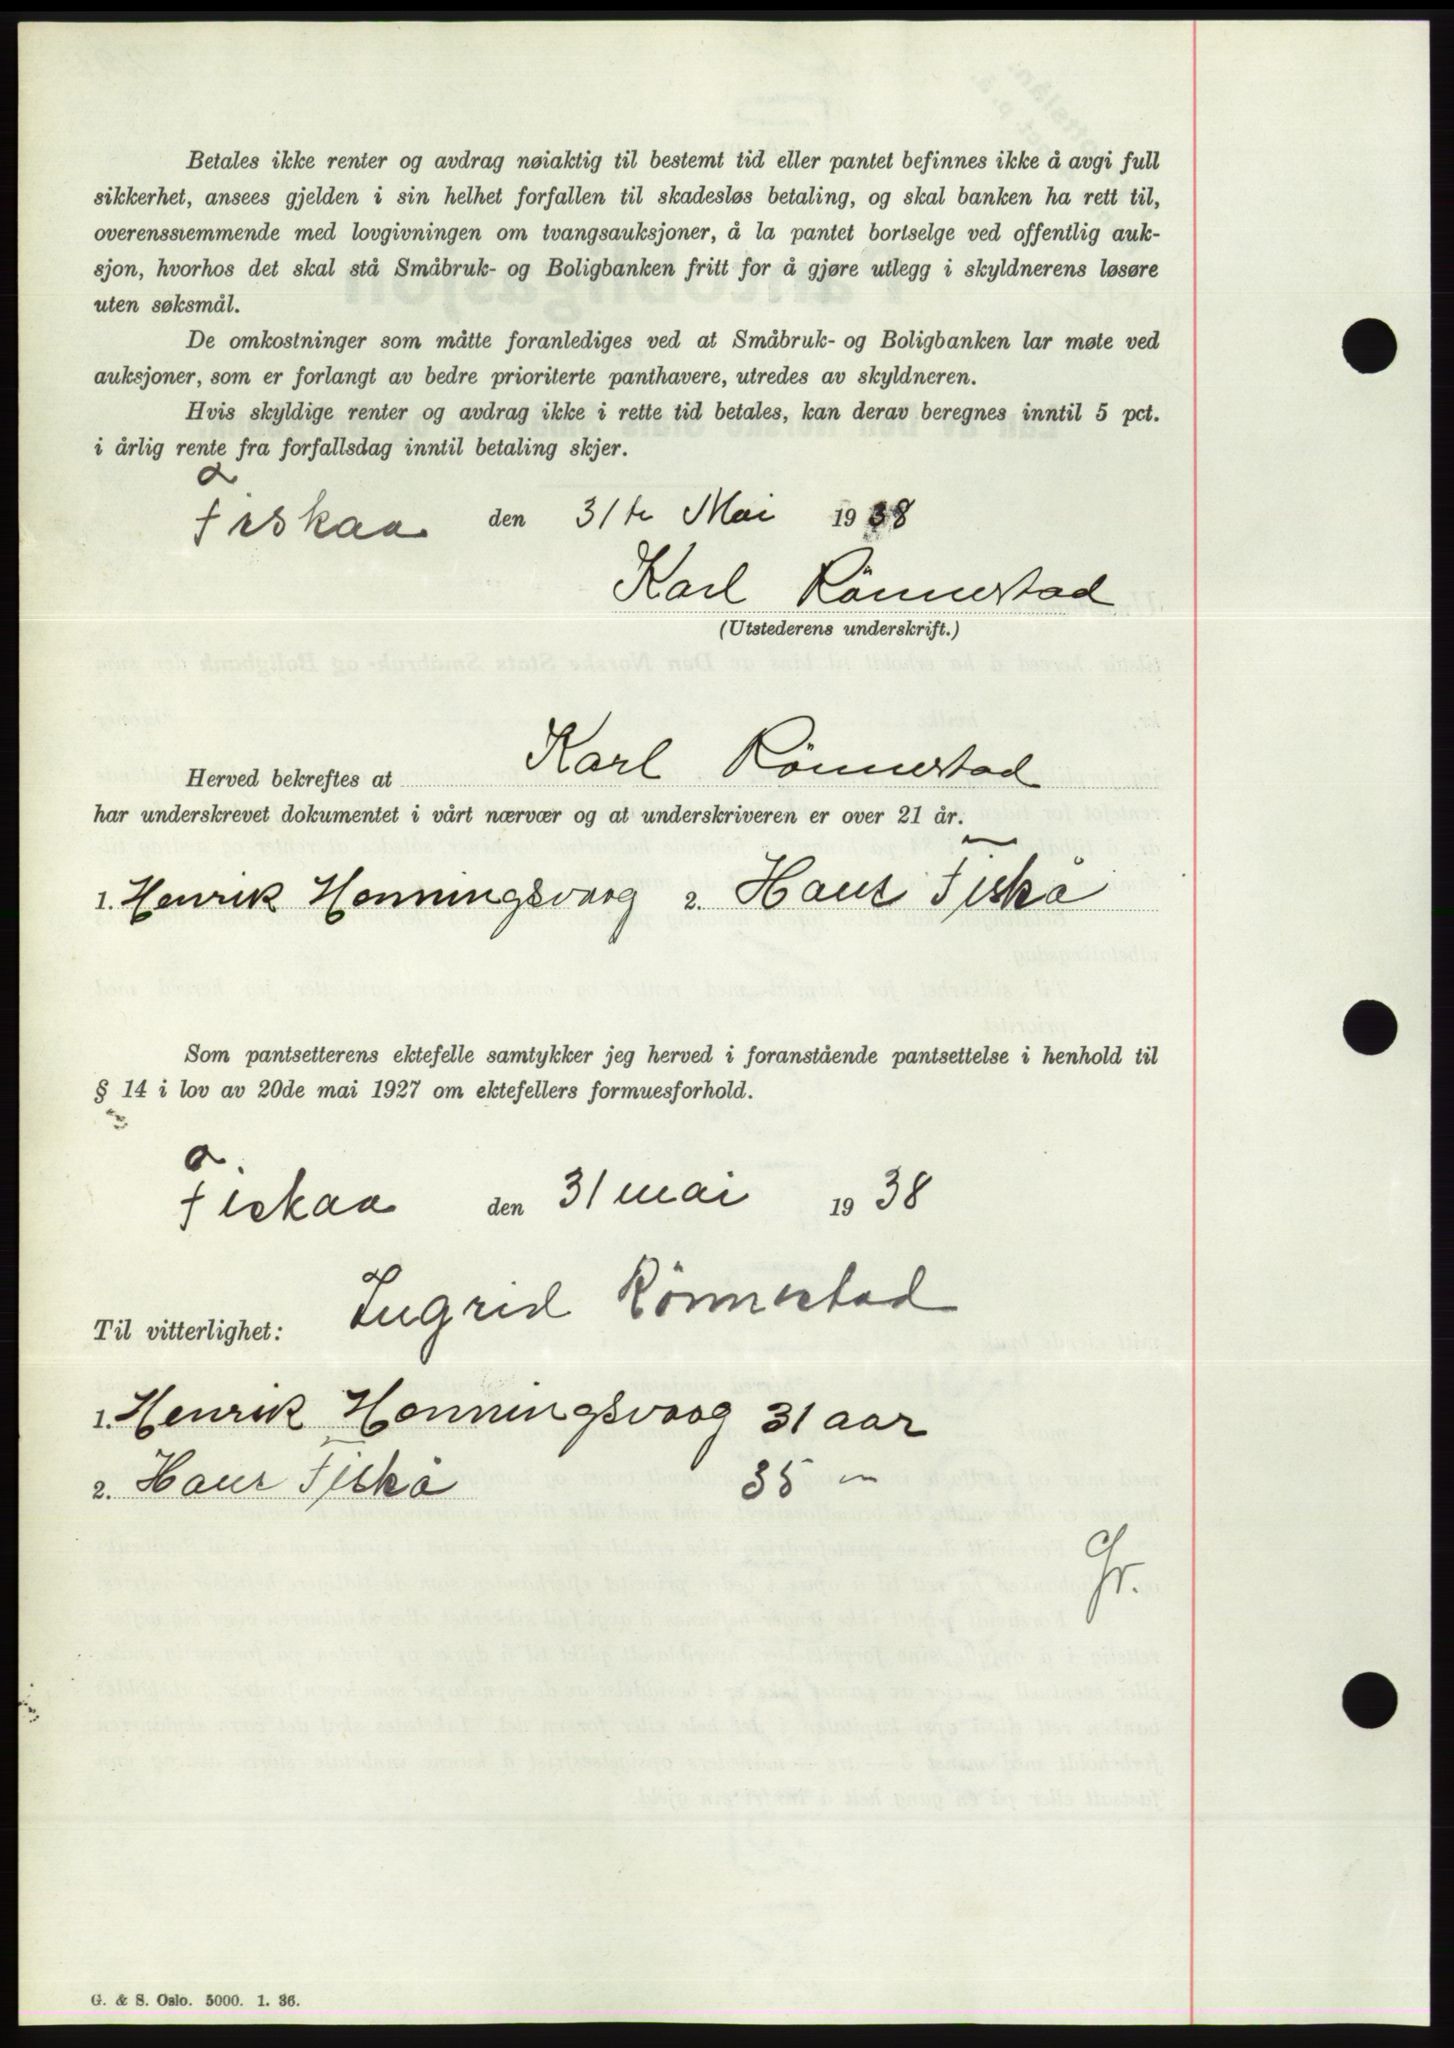 Betales ikke renter og avdrag nøiaktig til bestemt tid eller pantet befinnes ikke å avgi full
sikkerhet, ansees gjelden i sin helhet forfallen til skadesløs betaling, og skal banken ha rett til,
overensstemmende med lovgivningen om tvangsauksjoner, å la pantet bortselge ved offentlig auk-
sjon, hvorhos det skal stå Småbruk- og Boligbanken fritt for å gjøre utlegg i skyldnerens løsøre
uten søksmål.
De omkostninger som måtte foranlediges ved at Småbruk- og Boligbanken lar møte ved
auksjoner, som er forlangt av bedre prioriterte panthavere, utredes av skyldneren.
Hvis skyldige renter og avdrag ikke i rette tid betales, kan derav beregnes inntil 5 pct.
i årlig rente fra forfallsdag inntil betaling skjer.
Fiskaa den 31te Mai 1938
Karl Rönnestad
(Utstederens underskrift.)
Herved bekreftes at Karl Rönnestad
har underskrevet dokumentet i vårt nærvær og at underskriveren er over 21 år.
1. Henrik Honningsvaag 2. Hans Fiskå
Som pantsetterens ektefelle samtykker jeg herved i foranstående pantsettelse i henhold til
§ 14 i lov av 20de mai 1927 om ektefellers formuesforhold.
Fiskaa den 31 mai 1938
Ingrid Rönnestad
Til vitterlighet:
1. Henrik Honningsvaag 31 aar
2. Hans Fiskå 35 "
Gr.
G. & S. Oslo. 5000. 1. 36.